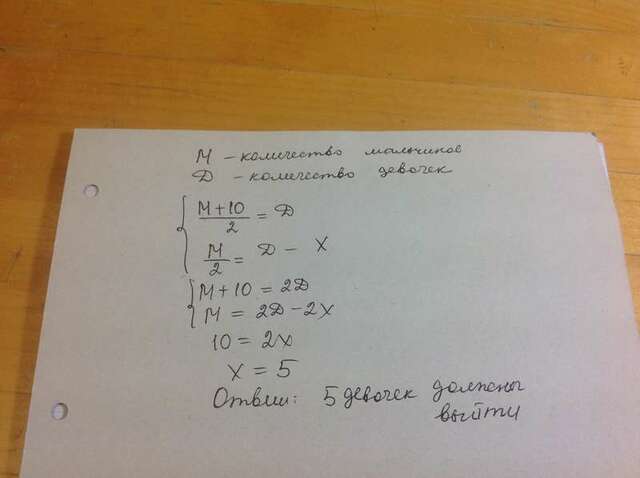 М – количество мальчиков
Д – количество девочек
(М+10)/2 = Д
М/2 = Д – х
М+10 = 2Д
М = 2Д – 2х
10 = 2х
х = 5
Ответ: 5 девочек должны
выйти